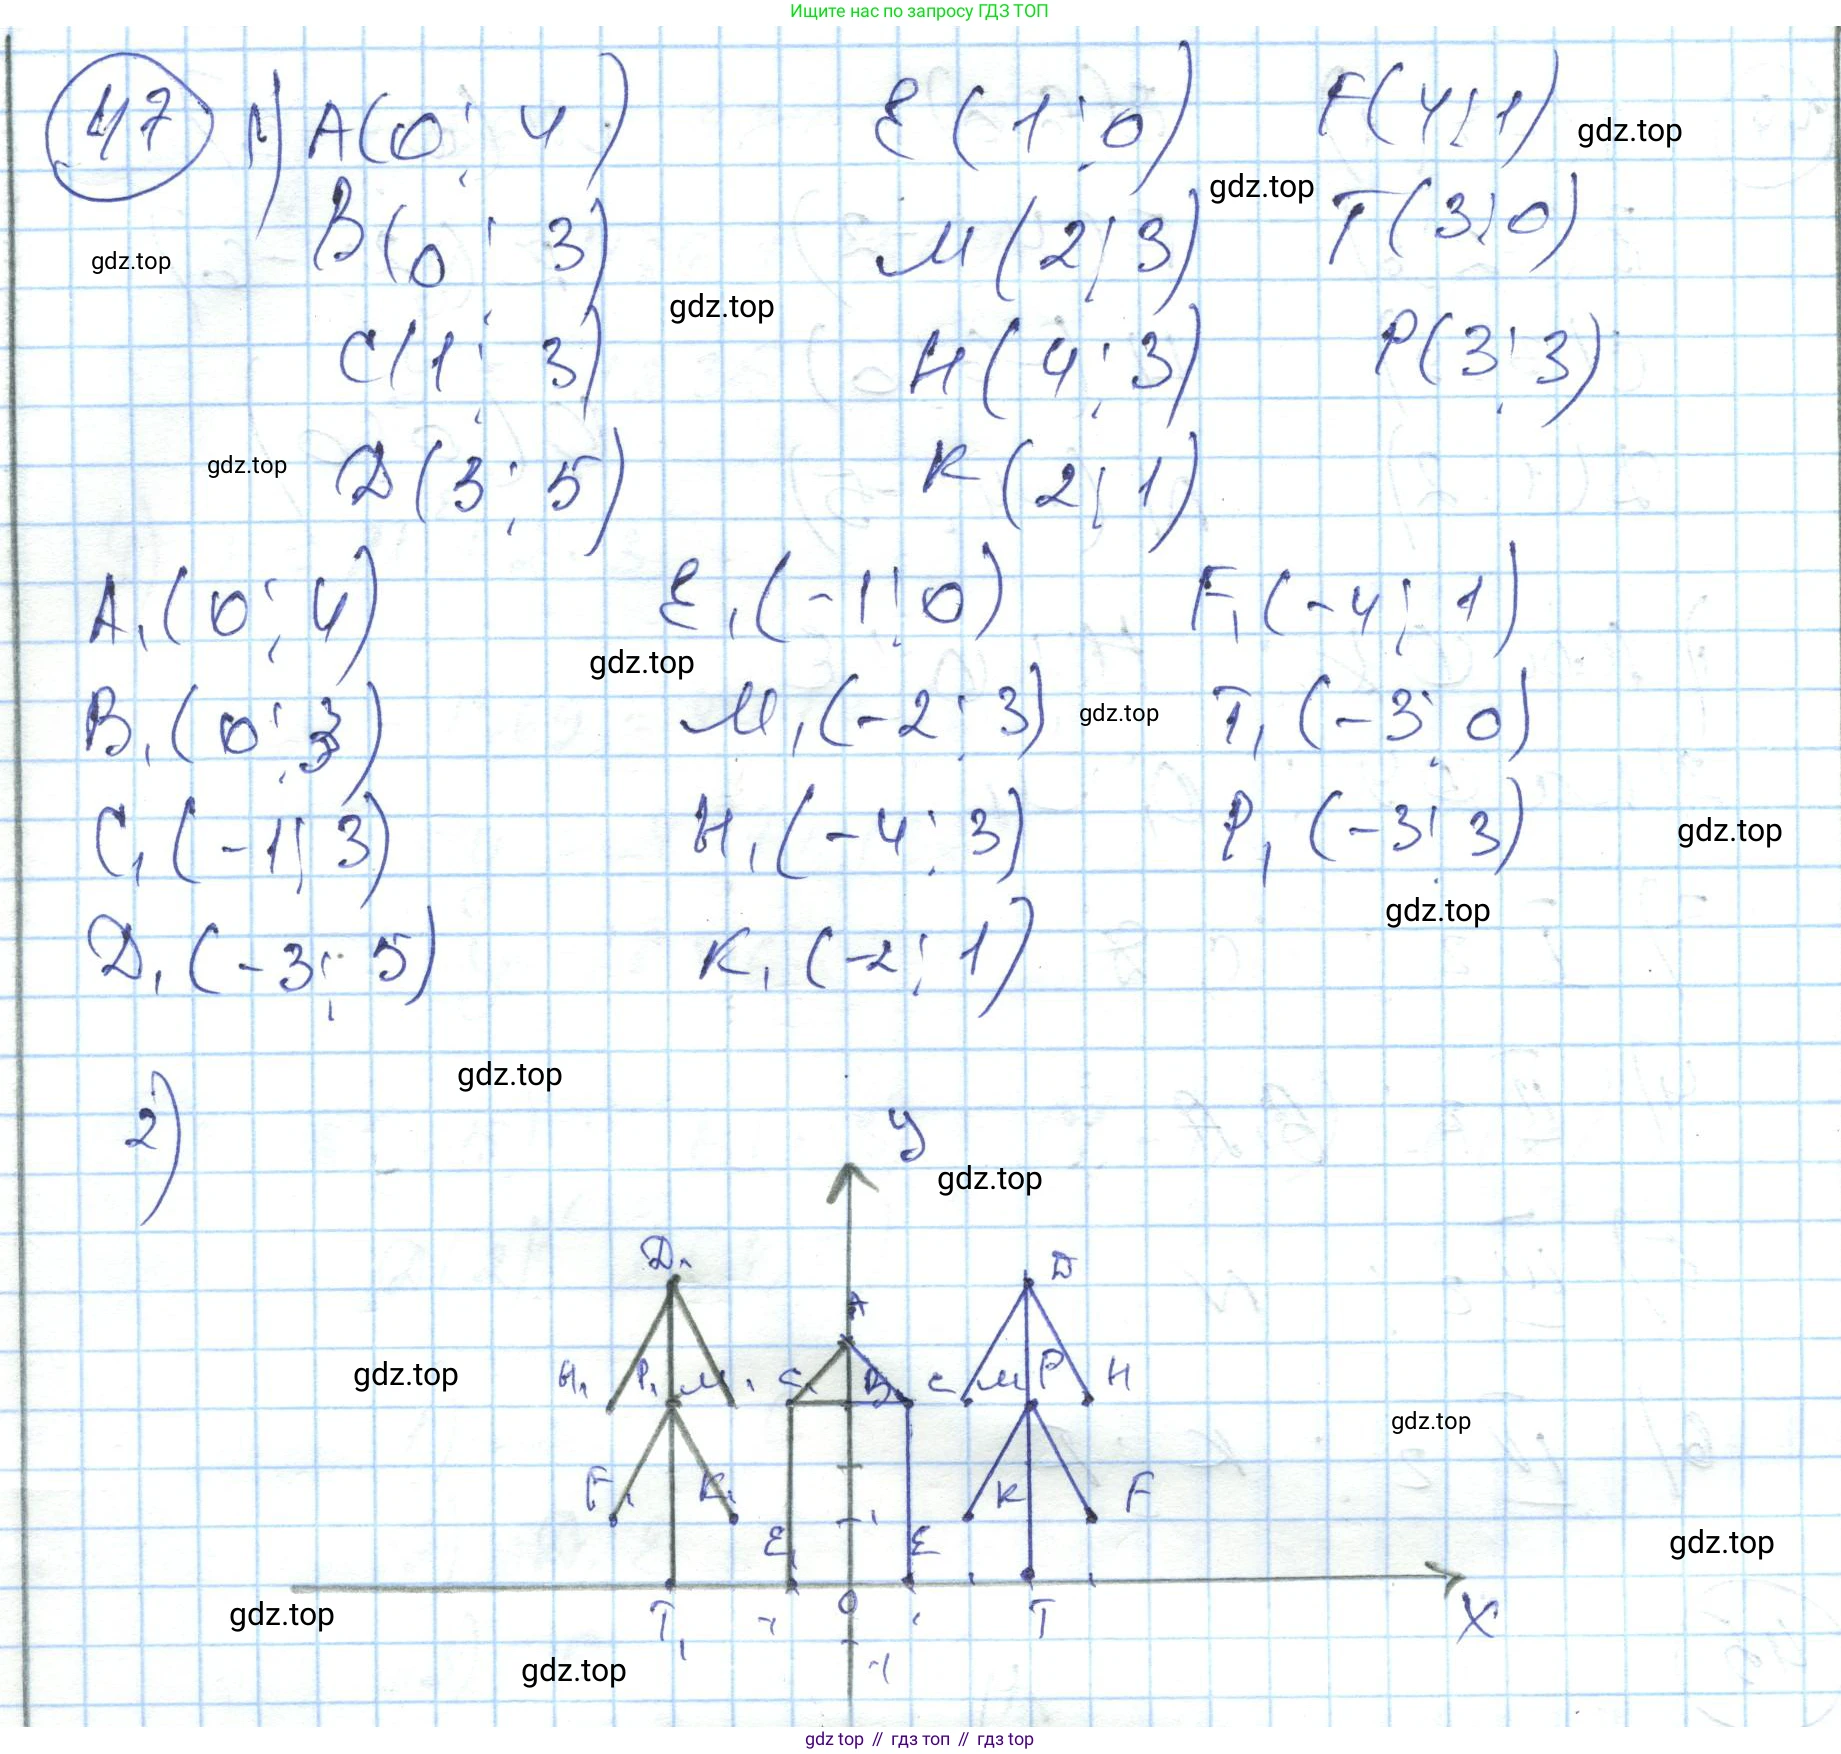 Ищите нас по запросу ГДЗ ТОП
47 1) A(0; 4) E(1; 0) F(4; 1) gdz.top
gdz.top B(0; 3) M(2; 3) gdz.top T(3; 0)
C(1; 3) gdz.top H(4; 3) P(3; 3)
gdz.top D(3; 5) K(2; 1)
A₁(0; 4) E₁(-1; 0) F₁(-4; 1)
gdz.top
B₁(0; 3) M₁(-2; 3) gdz.top T₁(-3; 0)
C₁(-1; 3) H₁(-4; 3) P₁(-3; 3) gdz.top
gdz.top
D₁(-3; 5) K₁(-2; 1)
gdz.top
2) y
gdz.top
D₁ D
A
gdz.top H₁ P₁ M₁ C₁ B C M P H
gdz.top
F₁ K₁ 1 K F
E₁ E gdz.top
gdz.top T₁ -1 0 1 T x
gdz.top -1
gdz top // гдз топ // гдз top